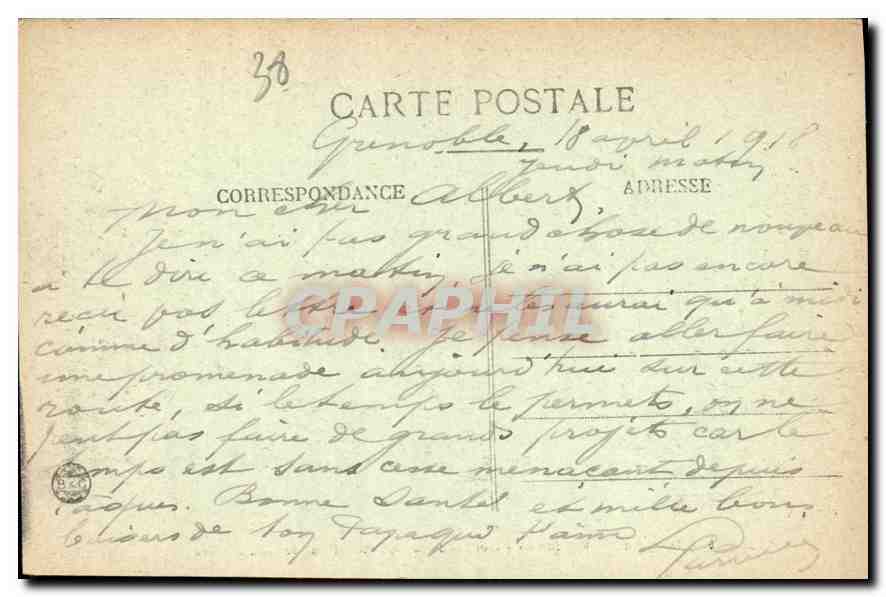 38
CARTE POSTALE
Grenoble, 18 avril 1918
jeudi matin
CORRESPONDANCE
ADRESSE
Mon cher Albert,
Je n'ai pas grand chose de nouveau
à te dire ce matin, je n'ai pas encore
reçu pas lettre n'aurai qu'à midi
comme d'habitude. Je pense aller faire
une promenade aujourd'hui sur cette
route, si le temps le permets, on ne
peut pas faire de grands projets car le
temps est sans cesse menaçant depuis
Pâques. Bonne santé et mille bons
baisers de ton papa qui t'aime
CPAPHIL
B & C